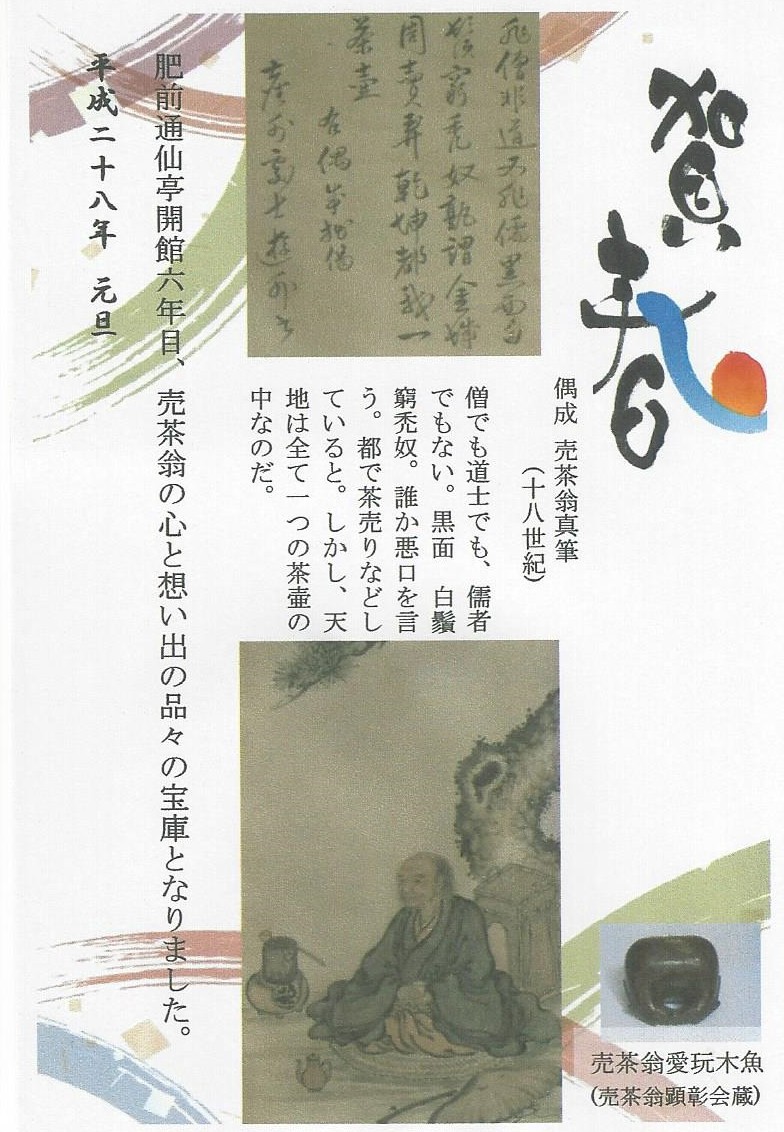 賀春
偶成 売茶翁真筆
(十八世紀)
非僧非道又非儒黒面白
鬚窮禿奴孰謂金城
周賣弄乾坤都我一
茶壷
右偶成拙偈
僧でも道士でも、儒者
でもない。黒面 白鬚
窮禿奴。誰か悪口を言
う。都で茶売りなどし
ていると。しかし、天
地は全て一つの茶壷の
中なのだ。
肥前通仙亭開館六年目、売茶翁の心と想い出の品々の宝庫となりました。
平成二十八年 元旦
売茶翁愛玩木魚
(売茶翁顕彰会蔵)